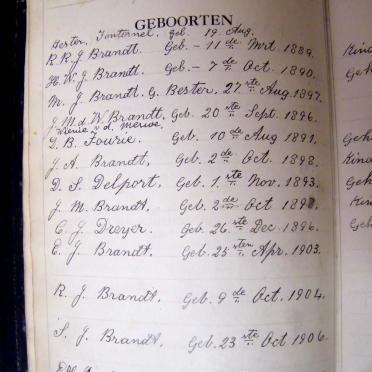 GEBOORTEN
Hester, Fonternel, geb. 19 Aug.
R. R. J. Brandt. Geb. - 11 de Mrt. 1889.
H. W. J. Brandt. Geb. - 7 de Oct. 1890.
M. J. Brandt. G. Bester, 27 ste Aug. 1897.
J. M. d. W. Brandt. Geb. 20 ste Sept. 1896.
v. d. Merwe
D. B. Fourie. Geb. 10 de Aug 1891.
J. A. Brandt, Geb. 2 de Oct. 1898.
D. S. Delport, Geb. 1. ste Nov. 1893.
J. M. Brandt. Geb. 2 de Oct
C. J. Dreyer. Geb. 26 ste Dec. 1896.
E. J. Brandt. Geb. 25 sten Apr. 1903.
R. J. Brandt. Geb. 9 de Oct. 1904.
S. J. Brandt. Geb. 23 ste Oct 1906.